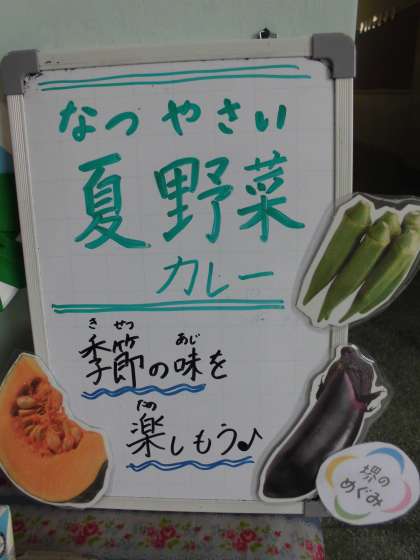 なつ やさい
夏野菜
カレー
きせつ あじ
季節の味を
たの
楽しもう♪
堺の
めぐみ